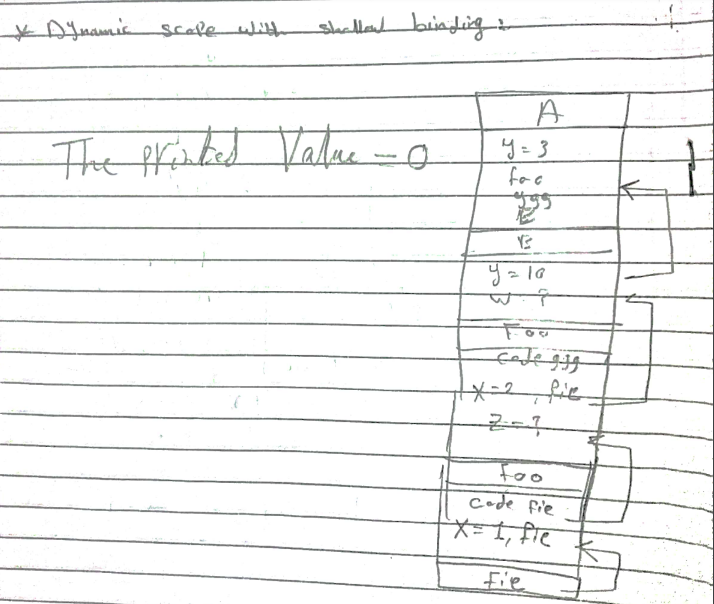 * Dynamic scope with shallow binding:
The printed Value = 0
A
y = 3
foo
ggg
B
y = 10
w = ?
Foo
code ggg
X = 2, fie
Z = ?
Foo
code fie
X = 1, fie
Fie